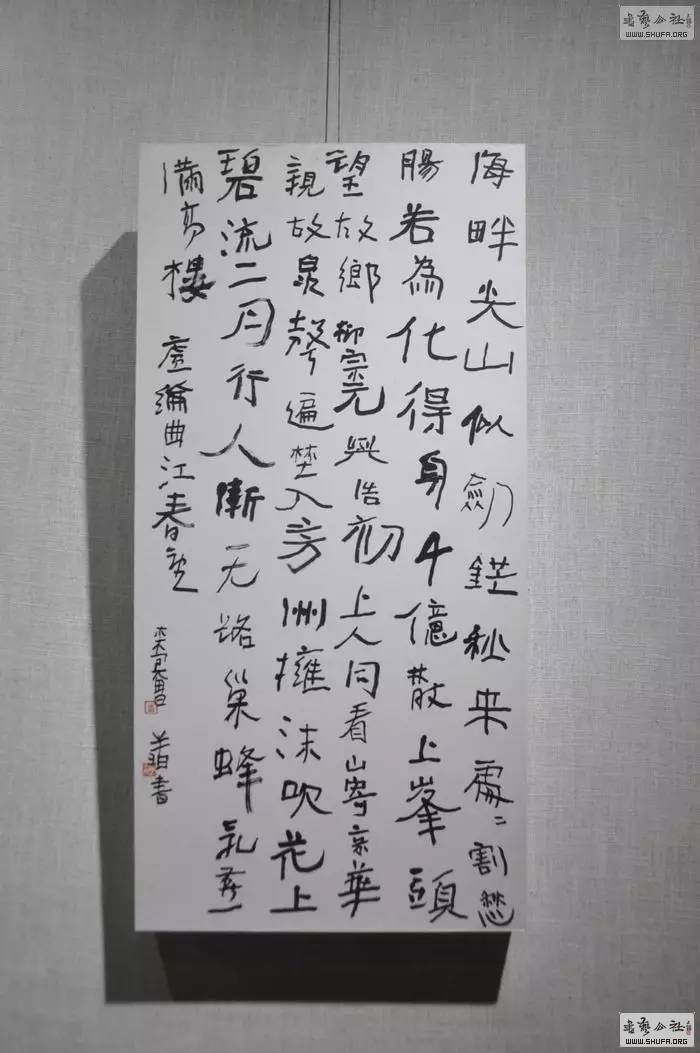 海畔尖山似劍鋩秋来處〻割愁
腸若為化得身千億散上峯頭
望故鄉 柳宗元與浩初上人同看山寄京華
親故泉聲遍埜入芳洲擁沫吹花上
碧流二月行人漸无路巢蜂乳燕
滿高樓 盧綸曲江春望
書
書藝公社
WWW.SHUFA.ORG
書藝公社
WWW.SHUFA.ORG